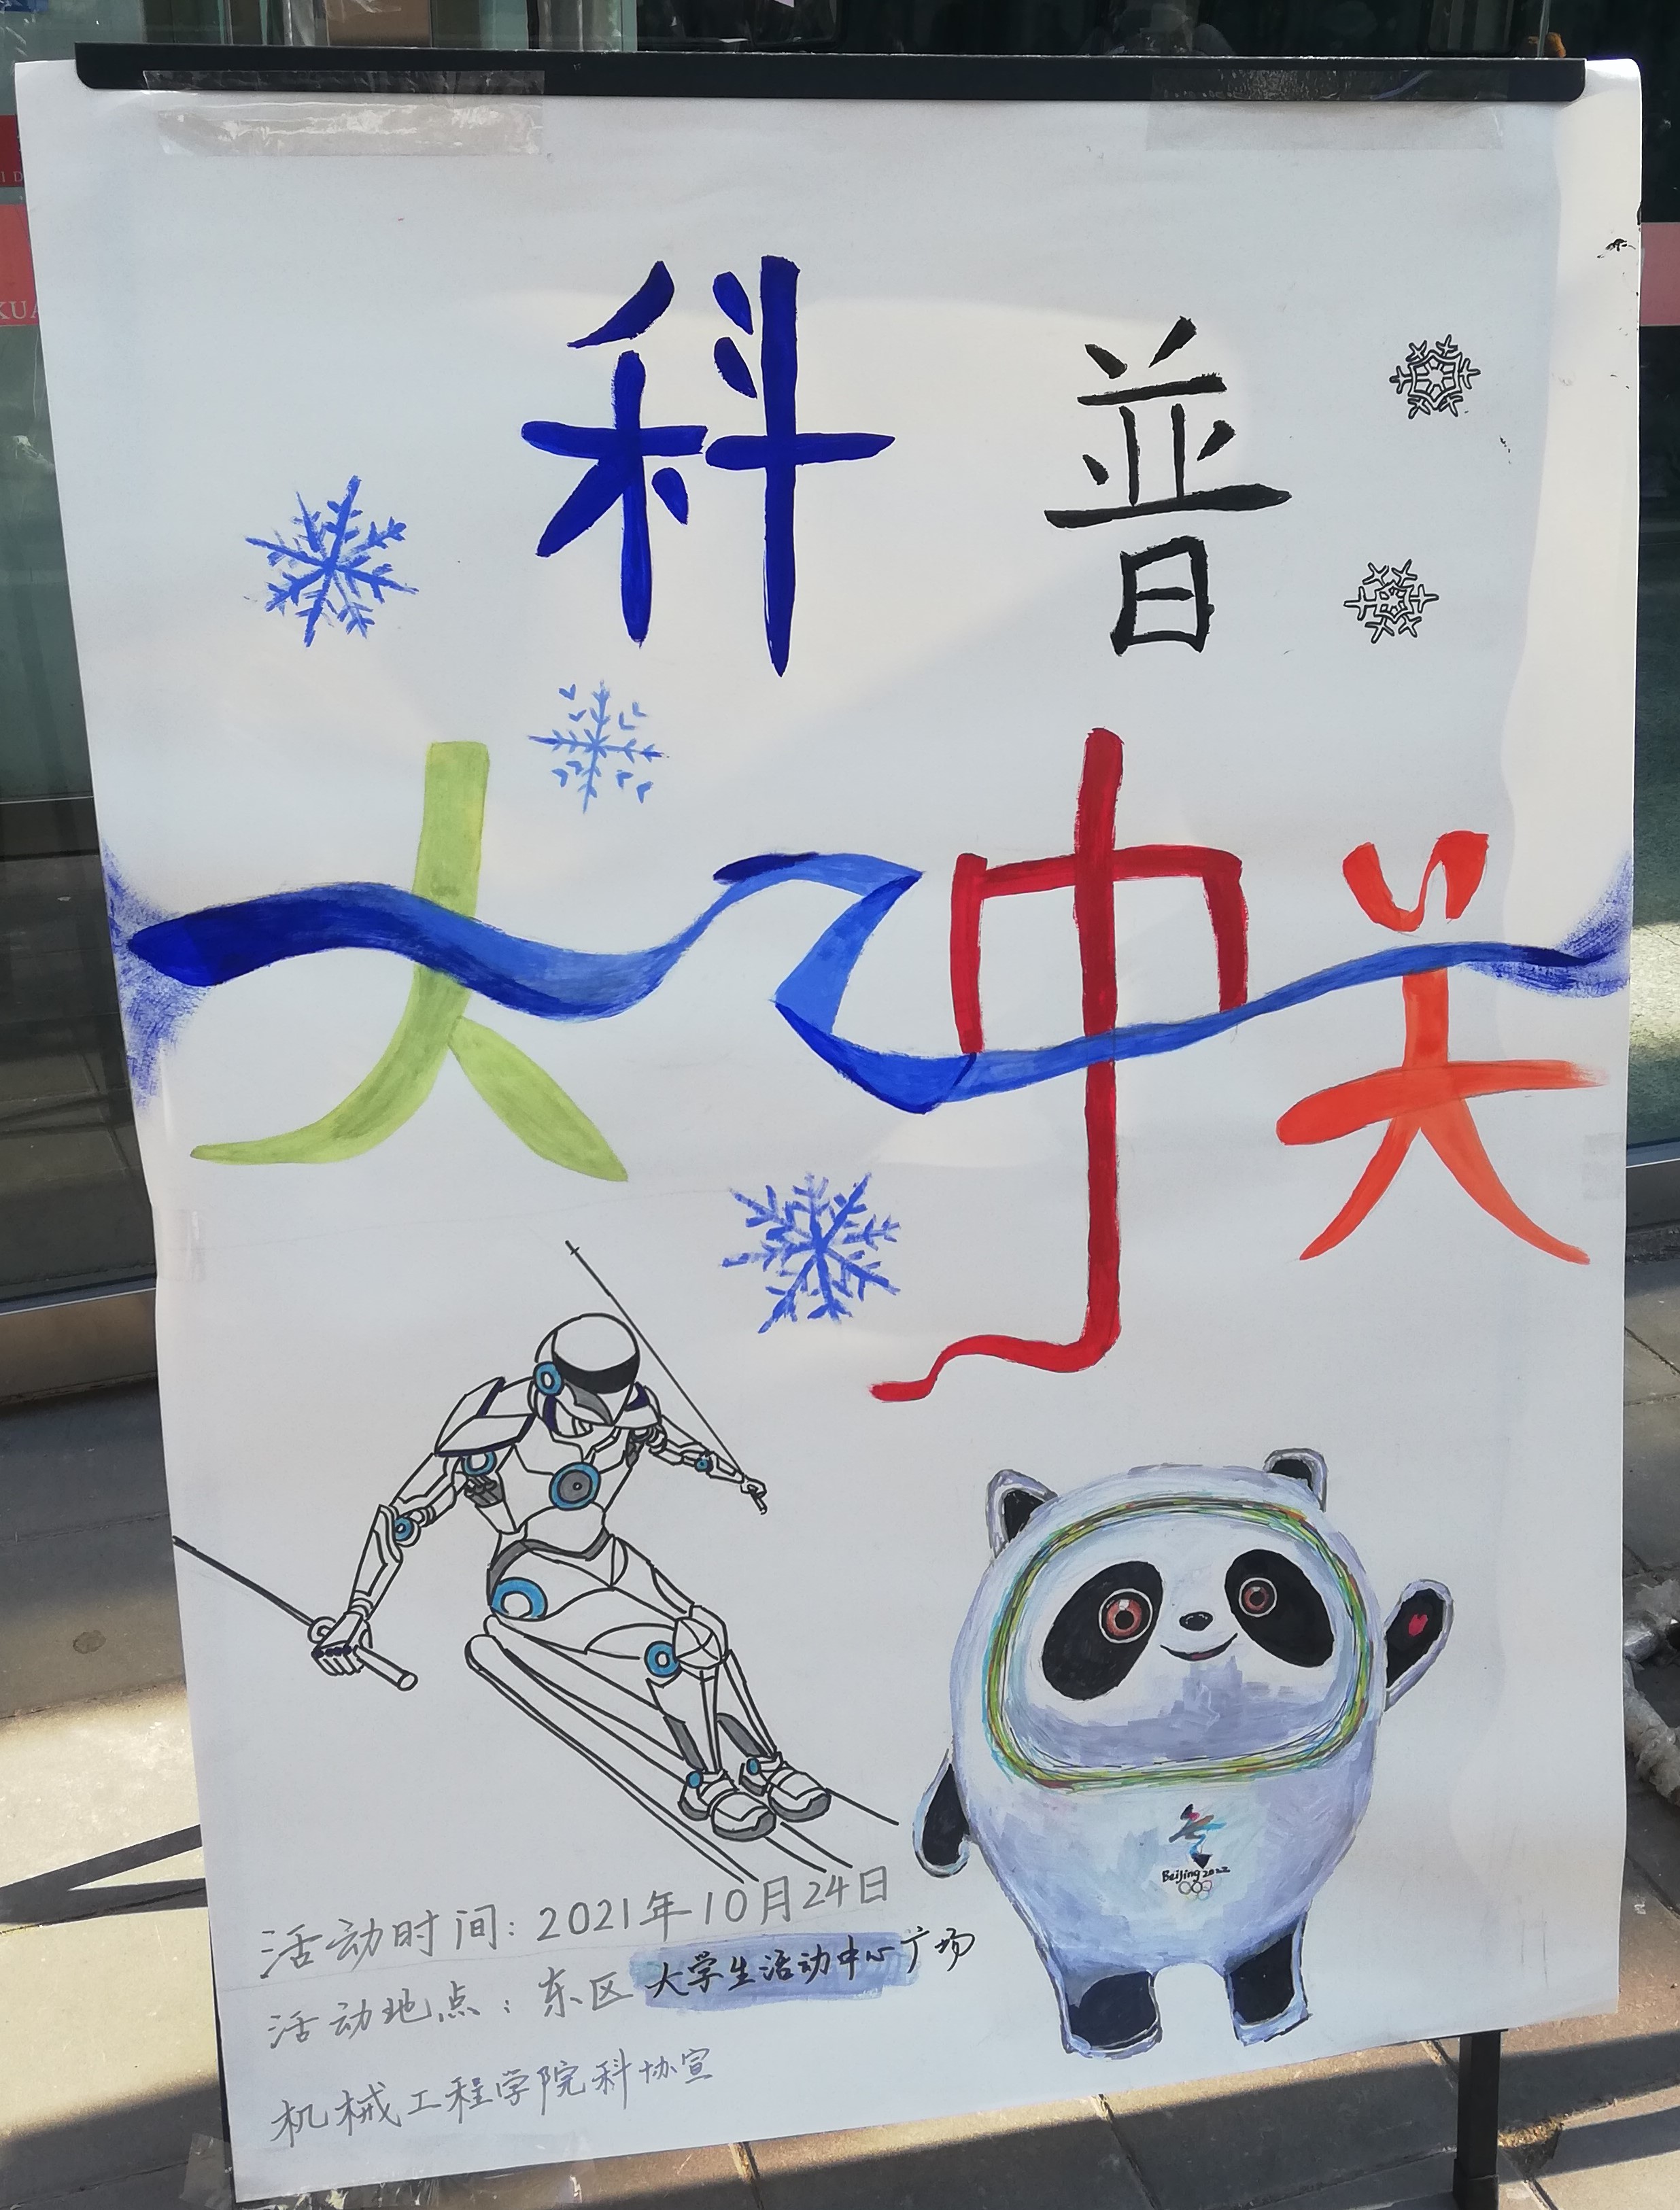 科普
大冲关
Beijing 2022
活动时间：2021年10月24日
活动地点：东区大学生活动中心广场
机械工程学院科协宣